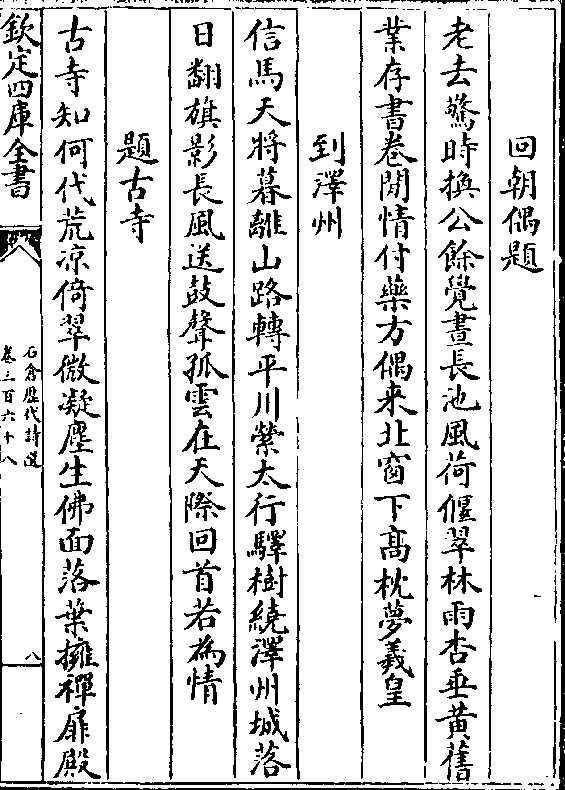 回朝偶題
老去驚時換公餘覺晝長池風荷偃翠林雨杏垂黄舊
業存書卷閒情付藥方偶来北窗下髙枕夢羲皇
到澤州
信馬天將暮離山路轉平川縈太行驛樹繞澤州城落
日翻旗影長風送鼓聲孤雲在天際回首若為情
題古寺
古寺知何代荒凉倚翠微凝塵生佛面落葉擁禪扉殿
欽定四庫全書
石倉歴代詩選
卷三百六十八
八